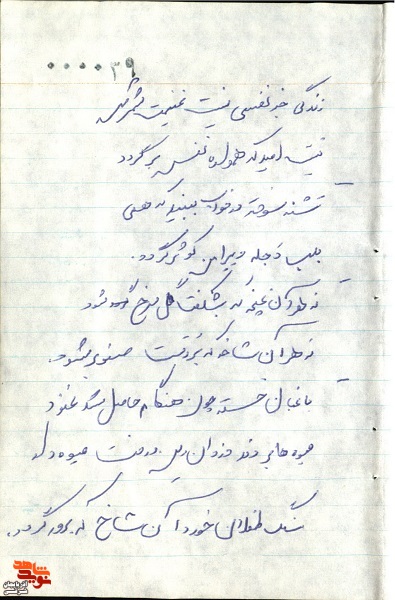 ۰۰۰۰۳۹
زندگی جز نفسی نیست غنیمت شمرش
نیست امید که همواره نفس برگردد
تشنه سوخته در خواب ببیند که همی
بلب دجله و پیرامن کوثر گردد.
نه هر آن غنچه که بشکفت گل سرخ شود
نه هر آن شاخه که بررست صنوبر بشود.
باغبان خسته چون هنگام حاصل شد غنود
میوه ها بردند دزدان زین درخت میوه دار
سنگ طفلان خورد آن شاخ که برور گردد.
شاهد
نوید